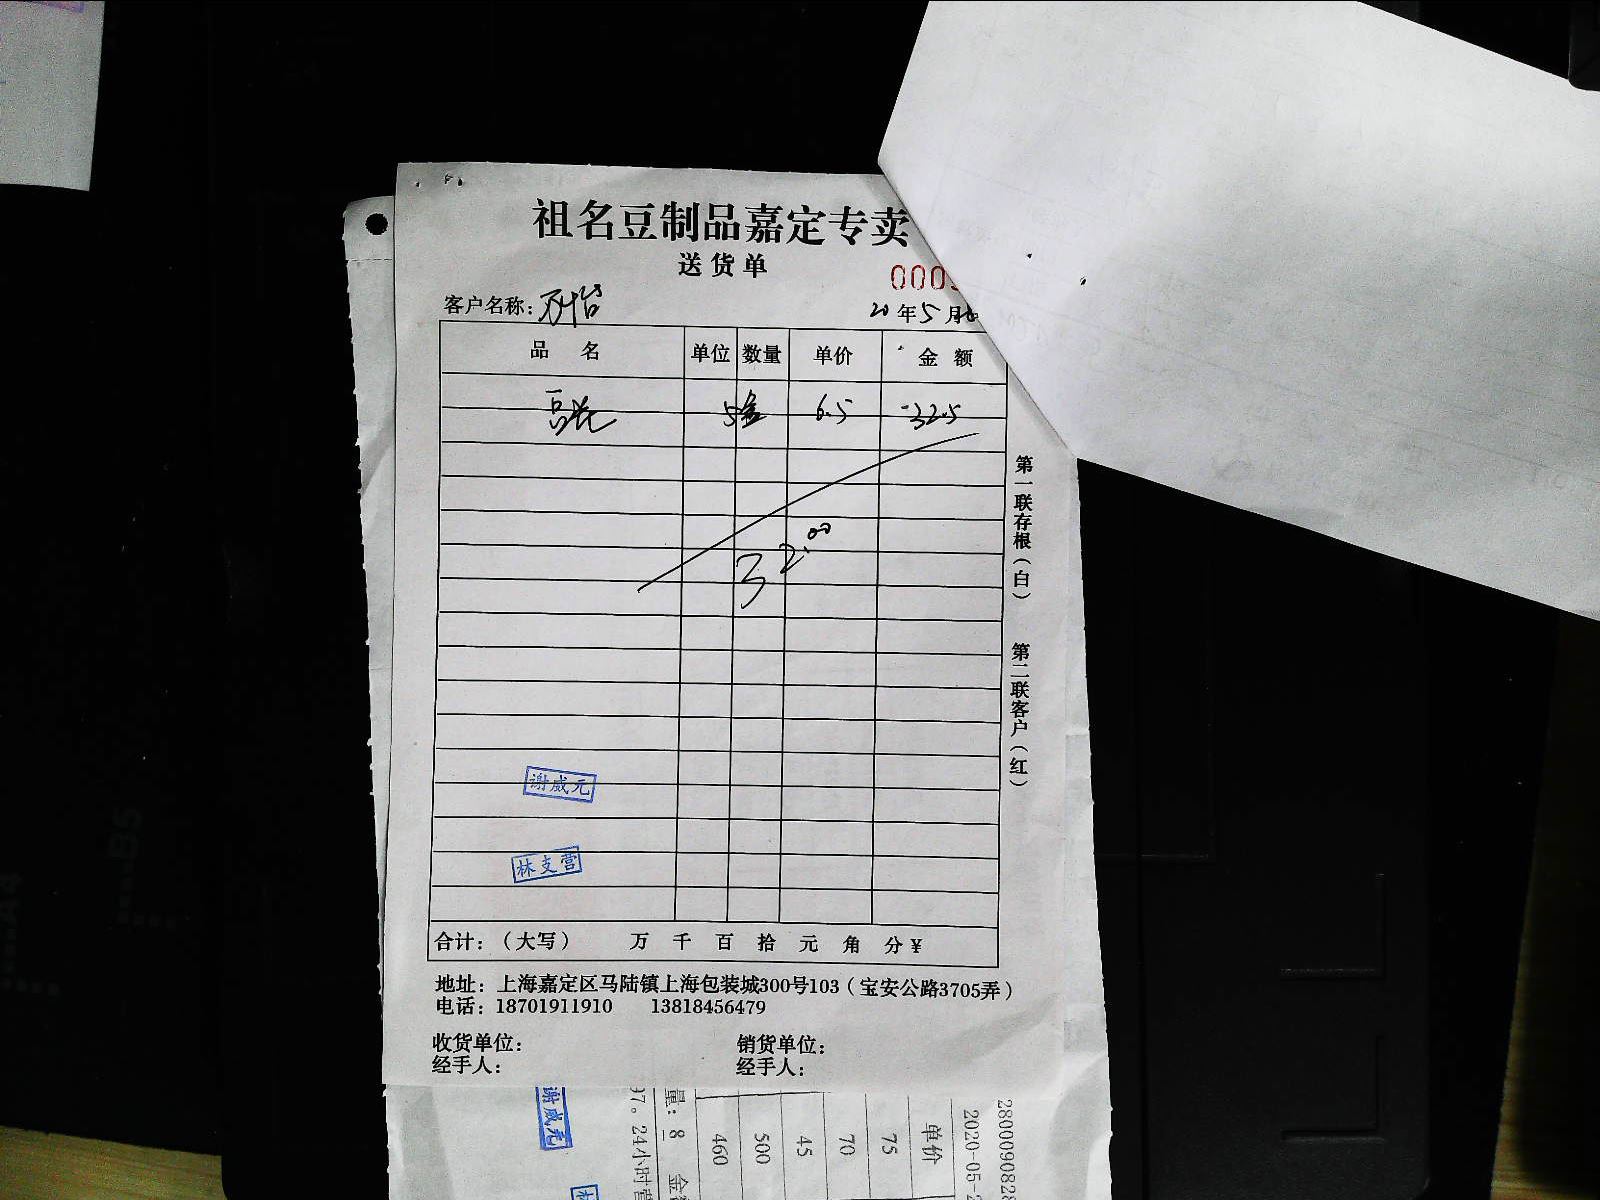 祖名豆制品嘉定专卖
送货单
000
客户名称：
20年5月
品名 单位 数量 单价 金额
豆花 5盒 6.5 32.5
32.00
第一联存根（白）
第二联客户（红）
谢威元
林支营
合计：（大写） 万 千 百 拾 元 角 分￥
地址：上海嘉定区马陆镇上海包装城300号103（宝安公路3705弄）
电话：18701911910 13818456479
收货单位： 销货单位：
经手人： 经手人：
谢威元
97。24小时营
量：8 金
460
500
45
70
75
单价
2020-05-2
280009082
B5
A4